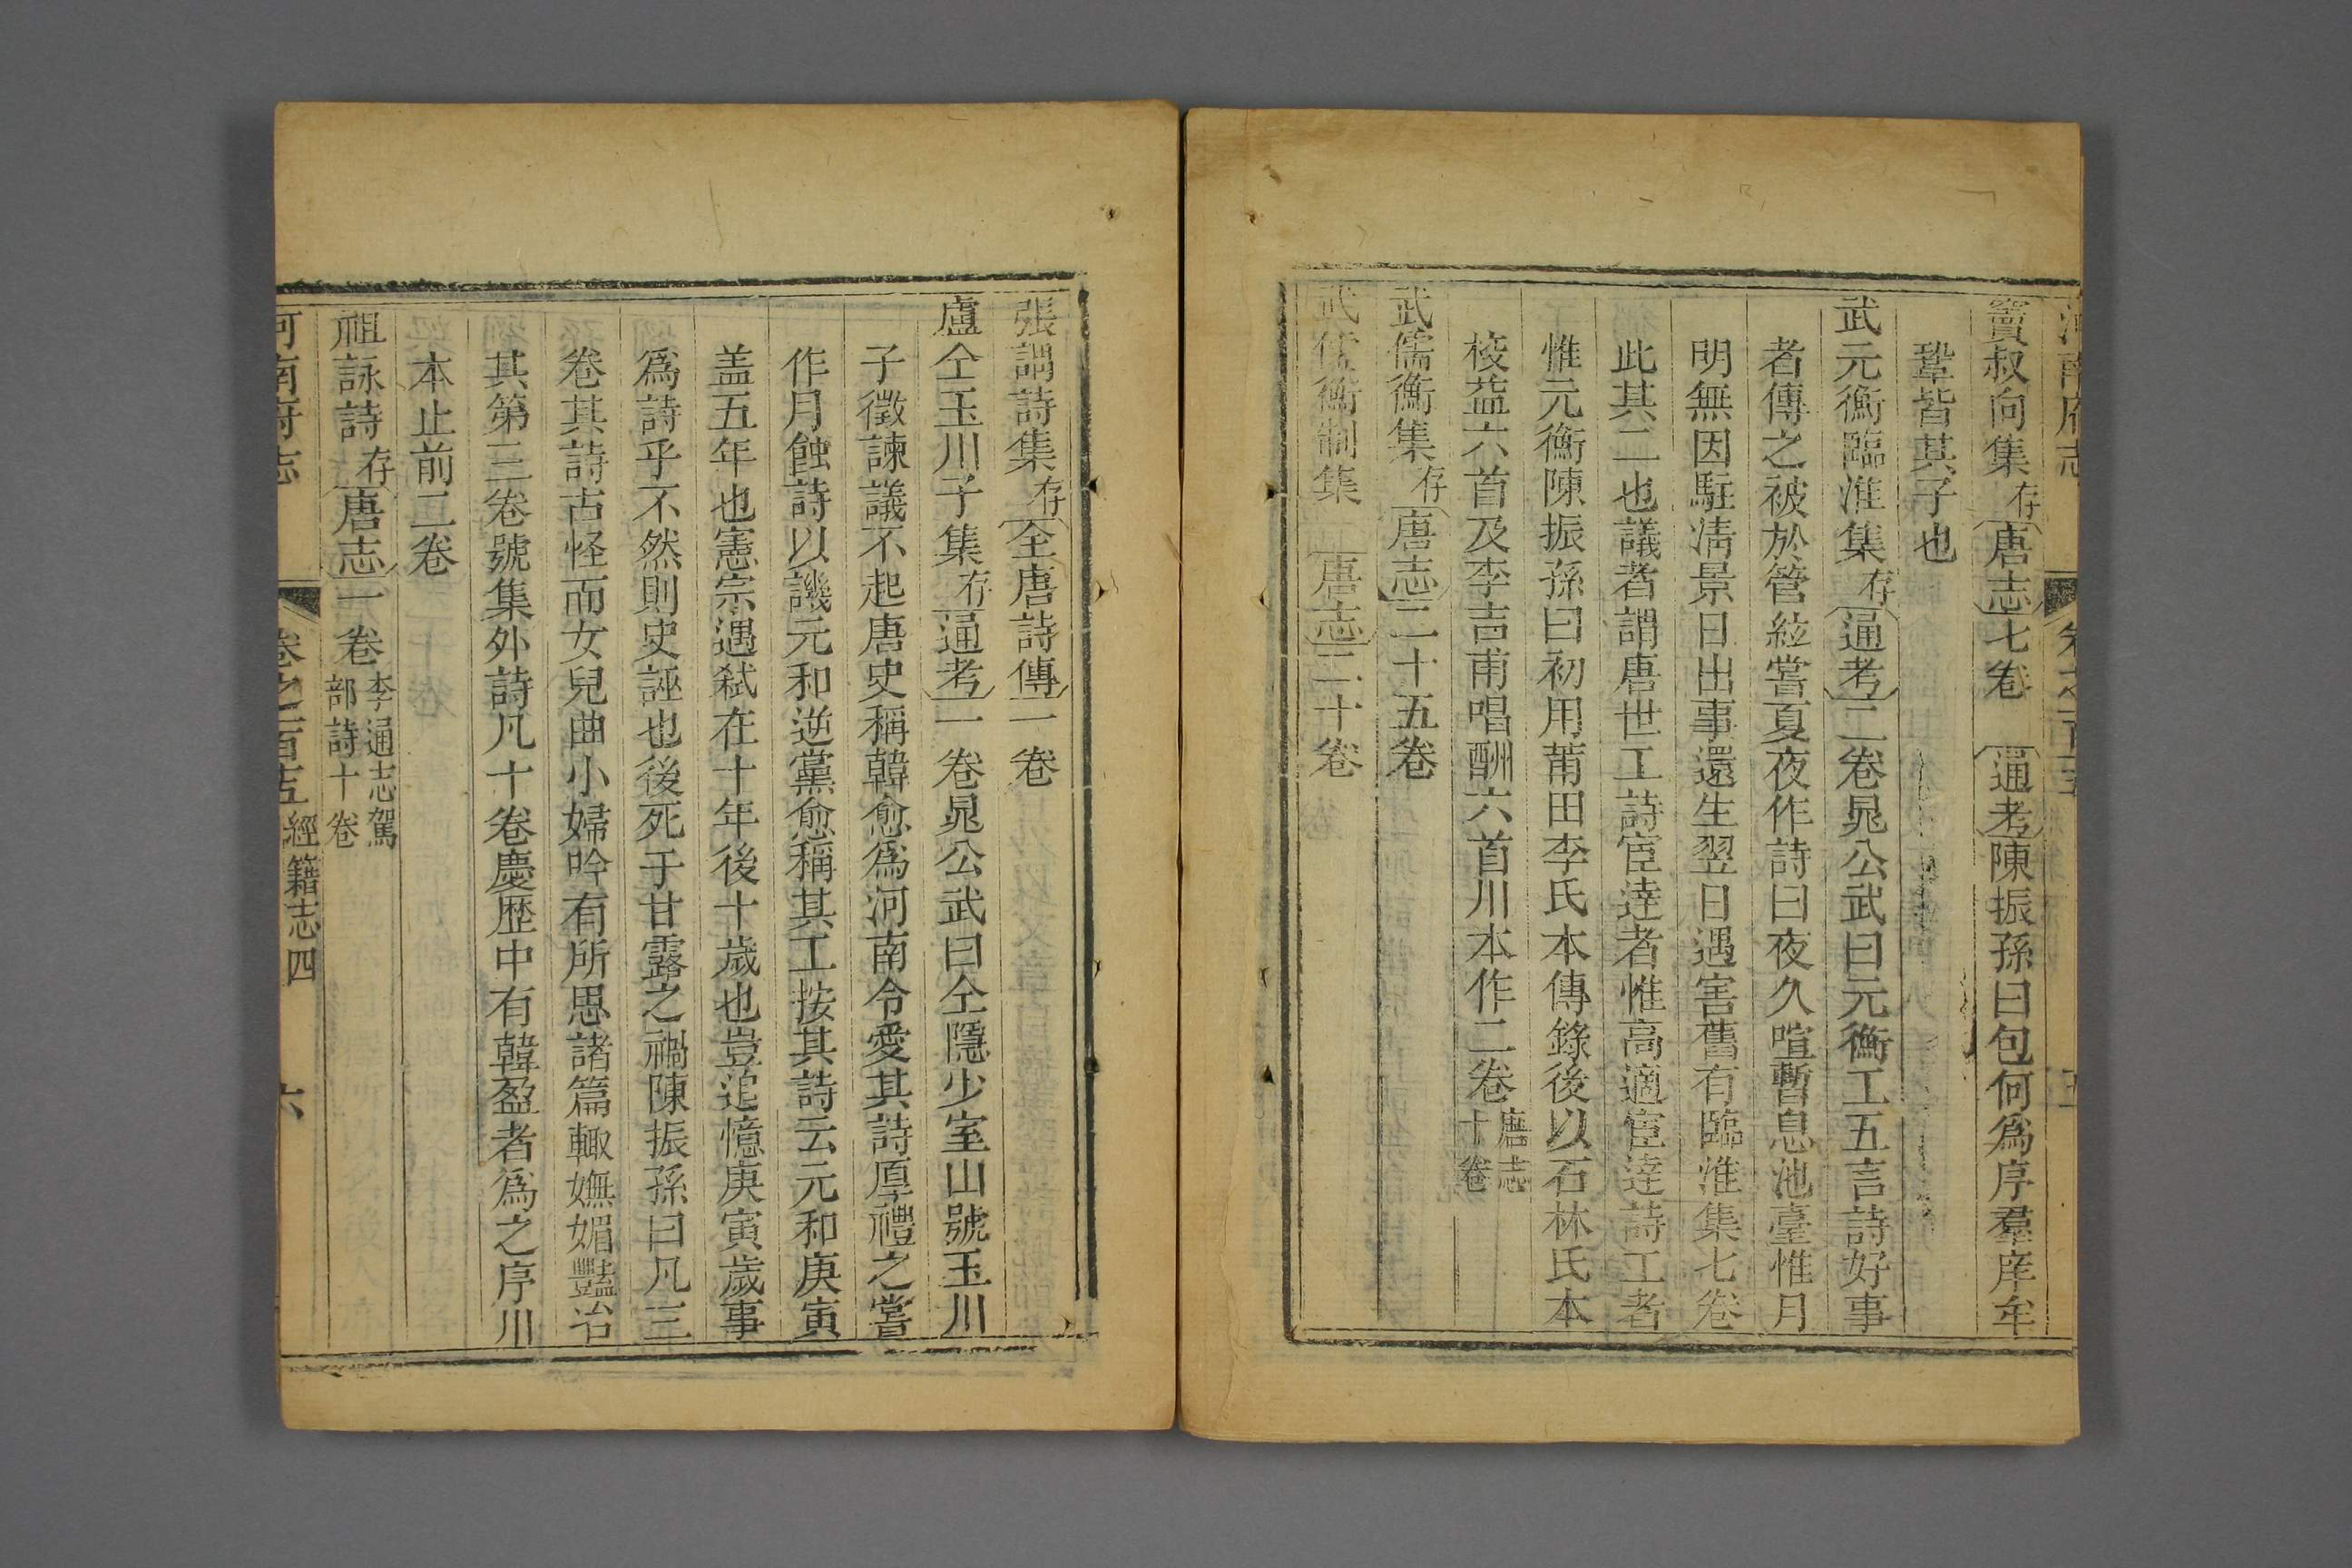 竇叔向集存唐志七卷 通考陳振孫曰包何爲序羣庠牟
鞏皆其子也
武元衡臨淮集存通考二卷晁公武曰元衡工五言詩好事
者傳之被於管絃嘗夏夜作詩曰夜久喧暫息池臺惟月
明無因駐淸景日出事還生翌日遇害舊有臨淮集七卷
此其二也議者謂唐世工詩宦達者惟高適宦達詩工者
惟元衡陳振孫曰初用莆田李氏本傳錄後以石林氏本
校益六首及李吉甫唱酬六首川本作二卷唐志十卷
武儒衡集存唐志二十五卷
武儒衡制集 唐志二十卷
張謂詩集存全唐詩傳一卷
盧仝玉川子集存通考一卷晁公武曰仝隱少室山號玉川
子徵諫議不起唐史稱韓愈爲河南令愛其詩厚禮之嘗
作月蝕詩以譏元和逆黨愈稱其工按其詩云元和庚寅
盖五年也憲宗遇弑在十年後十歲也豈追憶庚寅歲事
爲詩乎不然則史誣也後死于甘露之禍陳振孫曰凡三
卷其詩古怪而女兒曲小婦吟有所思諸篇輙嫵媚豔冶
其第三卷號集外詩凡十卷慶歷中有韓盈者爲之序川
本止前二卷
祖詠詩存唐志一卷李通志駕部詩十卷
河南府志 卷之一百五 經籍志四 六